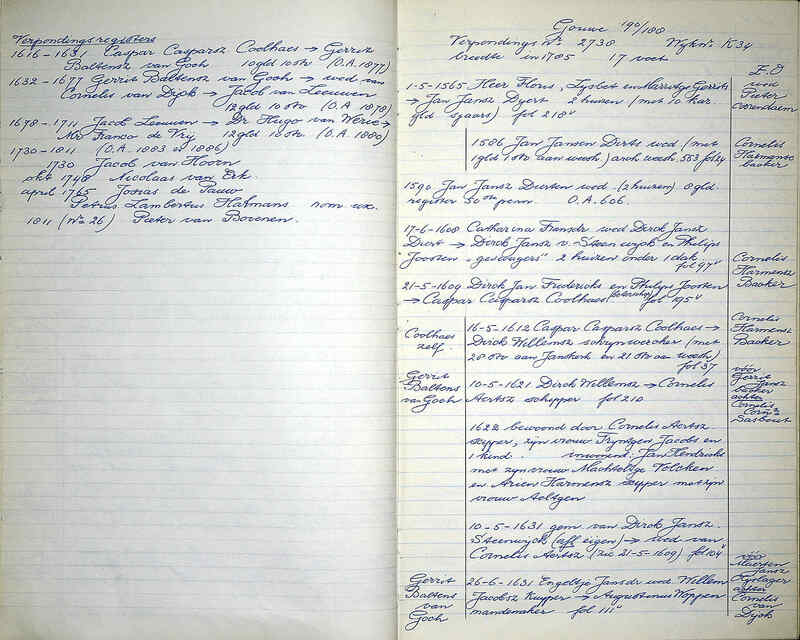 Verpondingsregisters
1616-1631 Caspar Casparsz Coolhaes → Gerrit
Baltensz van Goch 10 gld 10 str (O.A. 1877)
1632-1677 Gerrit Baltensz van Goch → wed van
Cornelis van Dijck → Jacob van Leeuwen
12 gld 10 str (O.A. 1878)
1678-1711 Jacob Leeuwen → Dr Hugo van
Franco de Vrij 12 gld 10 str. (O.A. 1880)
1730-1811 (O.A. 1883 en 1886)
1730 Jacob van Hoorn
okt 1748 Nicolaas van Eck.
april 1765 Josias de Pauw
Petrus Lambertus Hafmans nom ux.
1811 (No 26) Pieter van Borenen.
Gouwe 190/188
Verpondings No. 2738 Wijk No. K 34
breedte in 1785 17 voet
E.D
1-5-1565 Heer Floris, Lysbet en Marritge Gerrits
→ Jan Jansz Dyert 2 huizen (met 10 kar.
gld sjaars) fol 218v
wed
Pieter
1586 Jan Jansen Dirts wed (met
1 gld 1 str aan weesh) arch weesh. 583 fol 24
Cornelis
Harmensz
backer
1590 Jan Jansz Duerten wed. (2 huizen) 8 gld.
register 50ste penn. O.A. 606.
17-6-1608 Catharina Fransdr wed Dirck Jansz
Duert → Dirck Jansz v. Steenwijck en Philips
Joosten "geswagers" 2 huizen onder 1 dak
fol 97v
Cornelis
Harmensz
Backer
21-5-1609 Dirck Jan Fredericks en Philips Joosten
→ Caspar Casparsz Coolhaes fol 195v
Coolhaes
zelf.
16-5-1612 Caspar Casparsz Coolhaes →
Dirck Willemsz schrijnwercker (met
28 str aan Janskerk en 21 str aan weesh)
fol 37
Cornelis
Harmensz
Backer
Gerrit
Baltens
van Goch
10-5-1621 Dirck Willemsz → Cornelis
Aertsz schipper fol 210
vóór
Gerrit
Jansz
backer
achter
Cornelis
Corns
Sasbout
1622 bewoond door Cornelis Aertsz
scyper, zijn vrouw Tryntgen Jacobs en
1 kind. inwonend: Jan Hendricks
met zijn vrouw Machteltge Tolcken
en Arien Harmensz scyper met zijn
vrouw Aeltgen
10-5-1631 gem. van Dirck Jansz.
Steenwijck (afl. eigen) → wed van
Cornelis Aertsz (zie 21-5-1609) fol 104v
Gerrit
Baltens
van
Goch
26-6-1631 Engeltje Jansdr wed Willem
Jacobsz Kuyper → Augustinus Woppen
mandemaker fol 111v
vóór
Maerten
Jansz
achter
Cornelis
van
Dijck